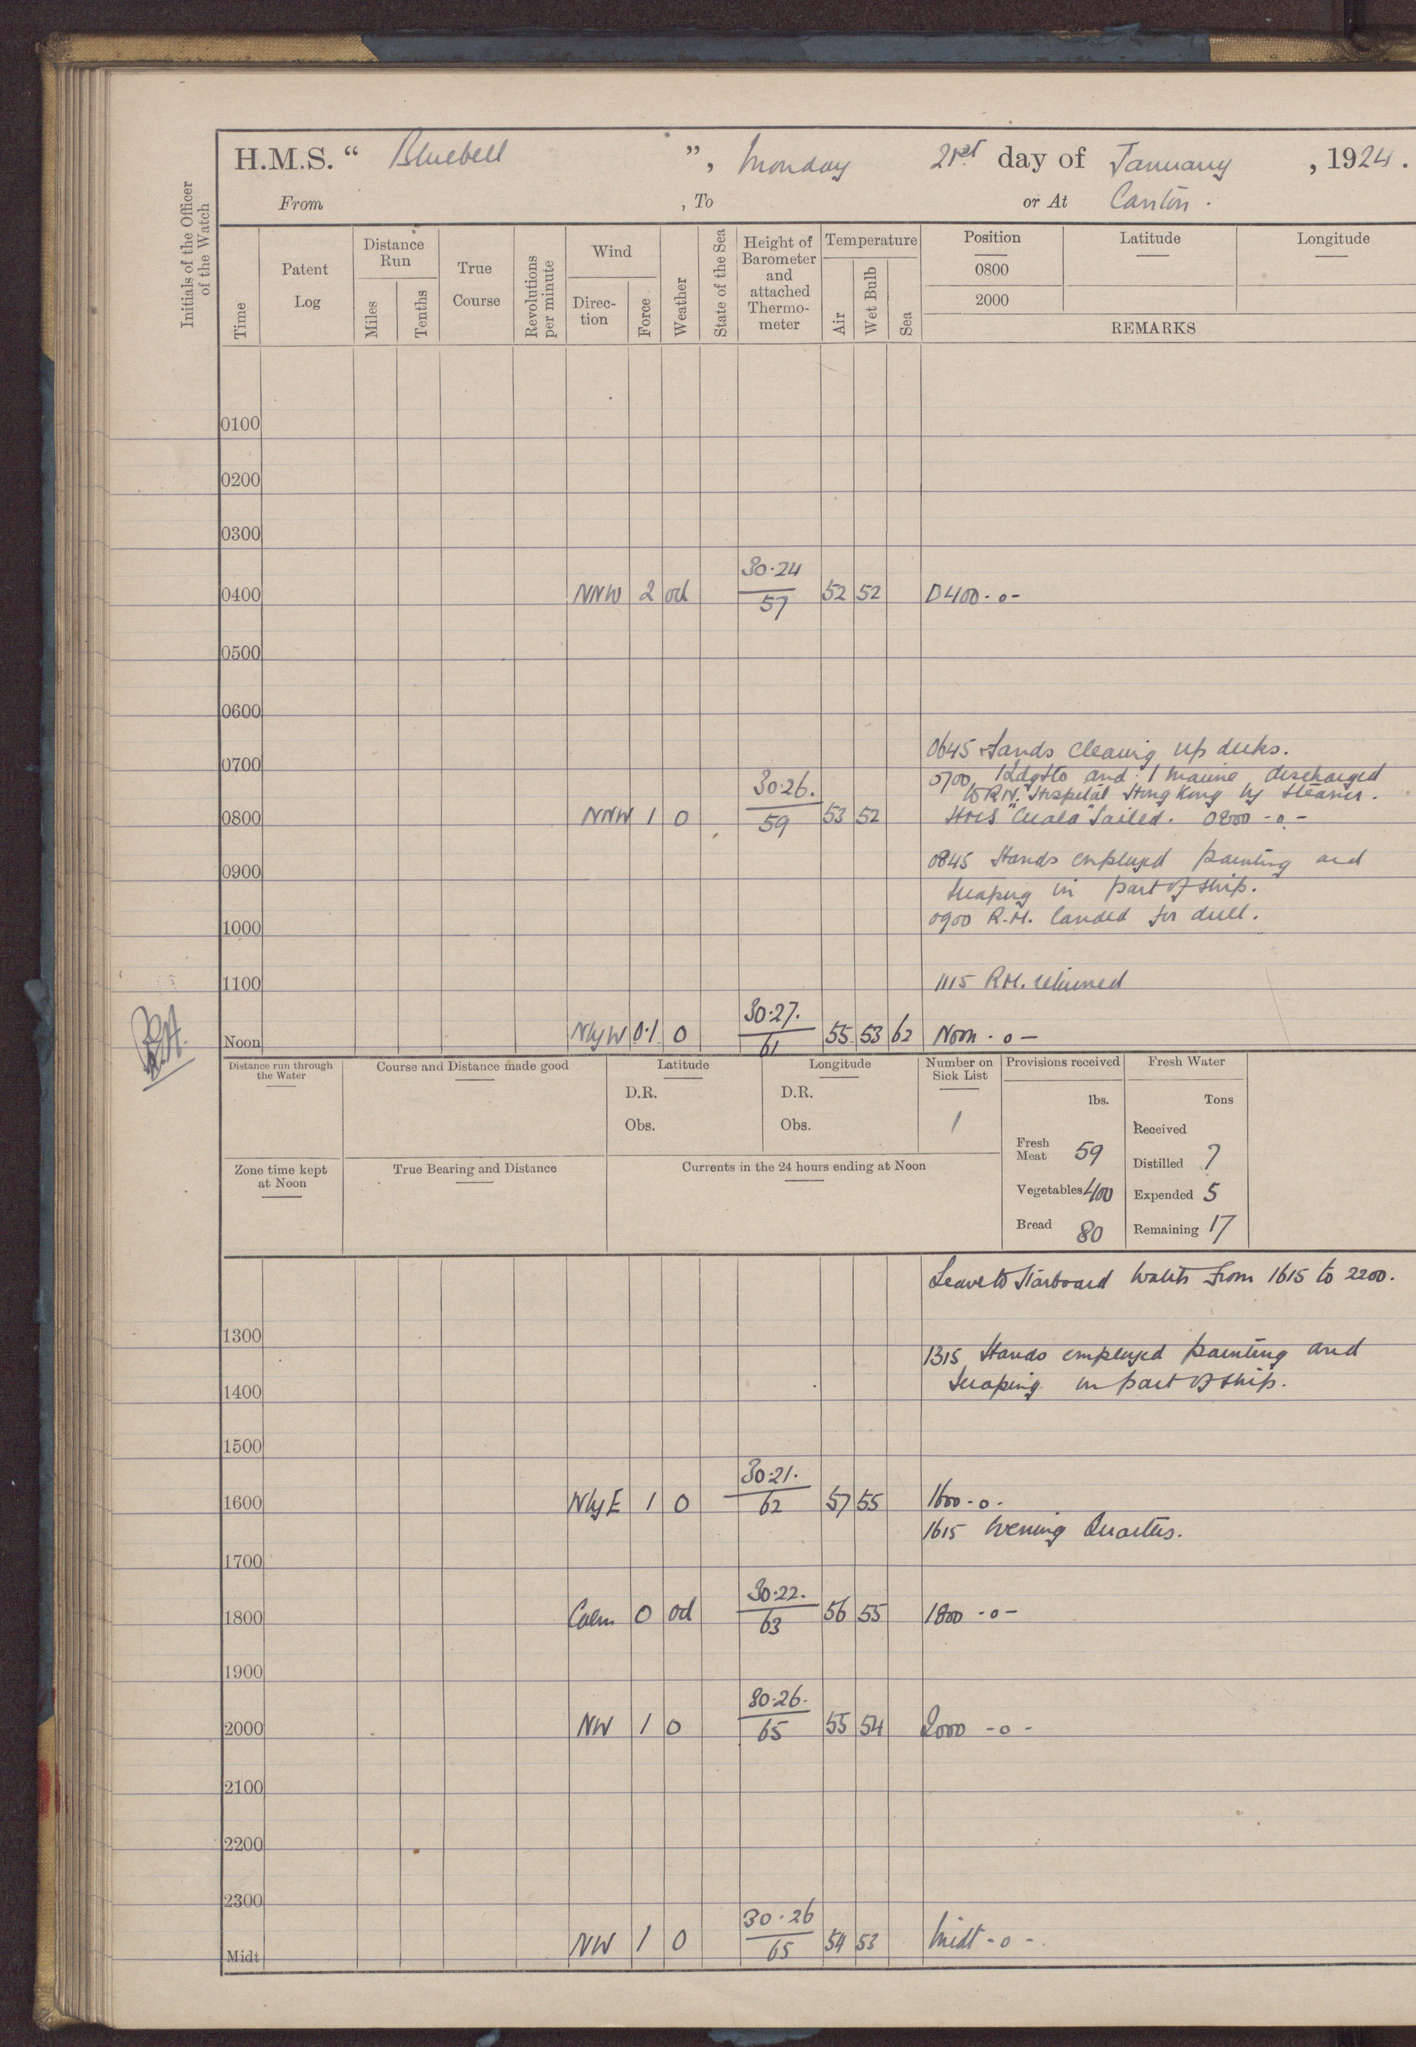 H.M.S. “ Bluebell ”, Monday 21st day of January , 1924.
From , To or At Canton.
Initials of the Officer of the Watch
Time
Patent Log
Distance Run
Miles
Tenths
True Course
Revolutions per minute
Wind
Direc- tion
Force
Weather
State of the Sea
Height of Barometer and attached Thermo- meter
Temperature
Air
Wet Bulb
Sea
Position Latitude Longitude
0800
2000
REMARKS
0100
0200
0300
0400 NNW 2 od 30.24 57 52 52 0400 -o-
0500
0600
0645 Hands cleaning up decks.
0700 0700 1 Ldg Sto and 1 marine discharged
to R.N. Hospital Hong Kong by steamer.
0800 NNW 1 o 30.26. 59 53 52 HMS "Cicala" sailed. 0800 -o-
0845 Hands employed painting and
0900 scraping in part of ship.
1000 0900 R.M. landed for drill.
1100 1115 R.M. returned
Noon NbyW 0.1 o 30.27. 61 55 53 62 Noon -o-
Distance run through the Water
Course and Distance made good
Latitude
D.R.
Obs.
Longitude
D.R.
Obs.
Number on Sick List
1
Provisions received
lbs.
Fresh Meat 59
Vegetables 400
Bread 80
Fresh Water
Tons
Received
Distilled 7
Expended 5
Remaining 17
Zone time kept at Noon
True Bearing and Distance
Currents in the 24 hours ending at Noon
Leave to Starboard Watch from 1615 to 2200.
1300
1315 Hands employed painting and
1400 scraping in part of ship.
1500
1600 NbyE 1 o 30.21. 62 57 55 1600 -o-
1615 Evening Quarters.
1700
1800 Calm 0 od 30.22. 63 56 55 1800 -o-
1900
2000 NW 1 o 30.26. 65 55 54 2000 -o-
2100
2200
2300
Midt NW 1 o 30.26 65 54 53 Midt -o-